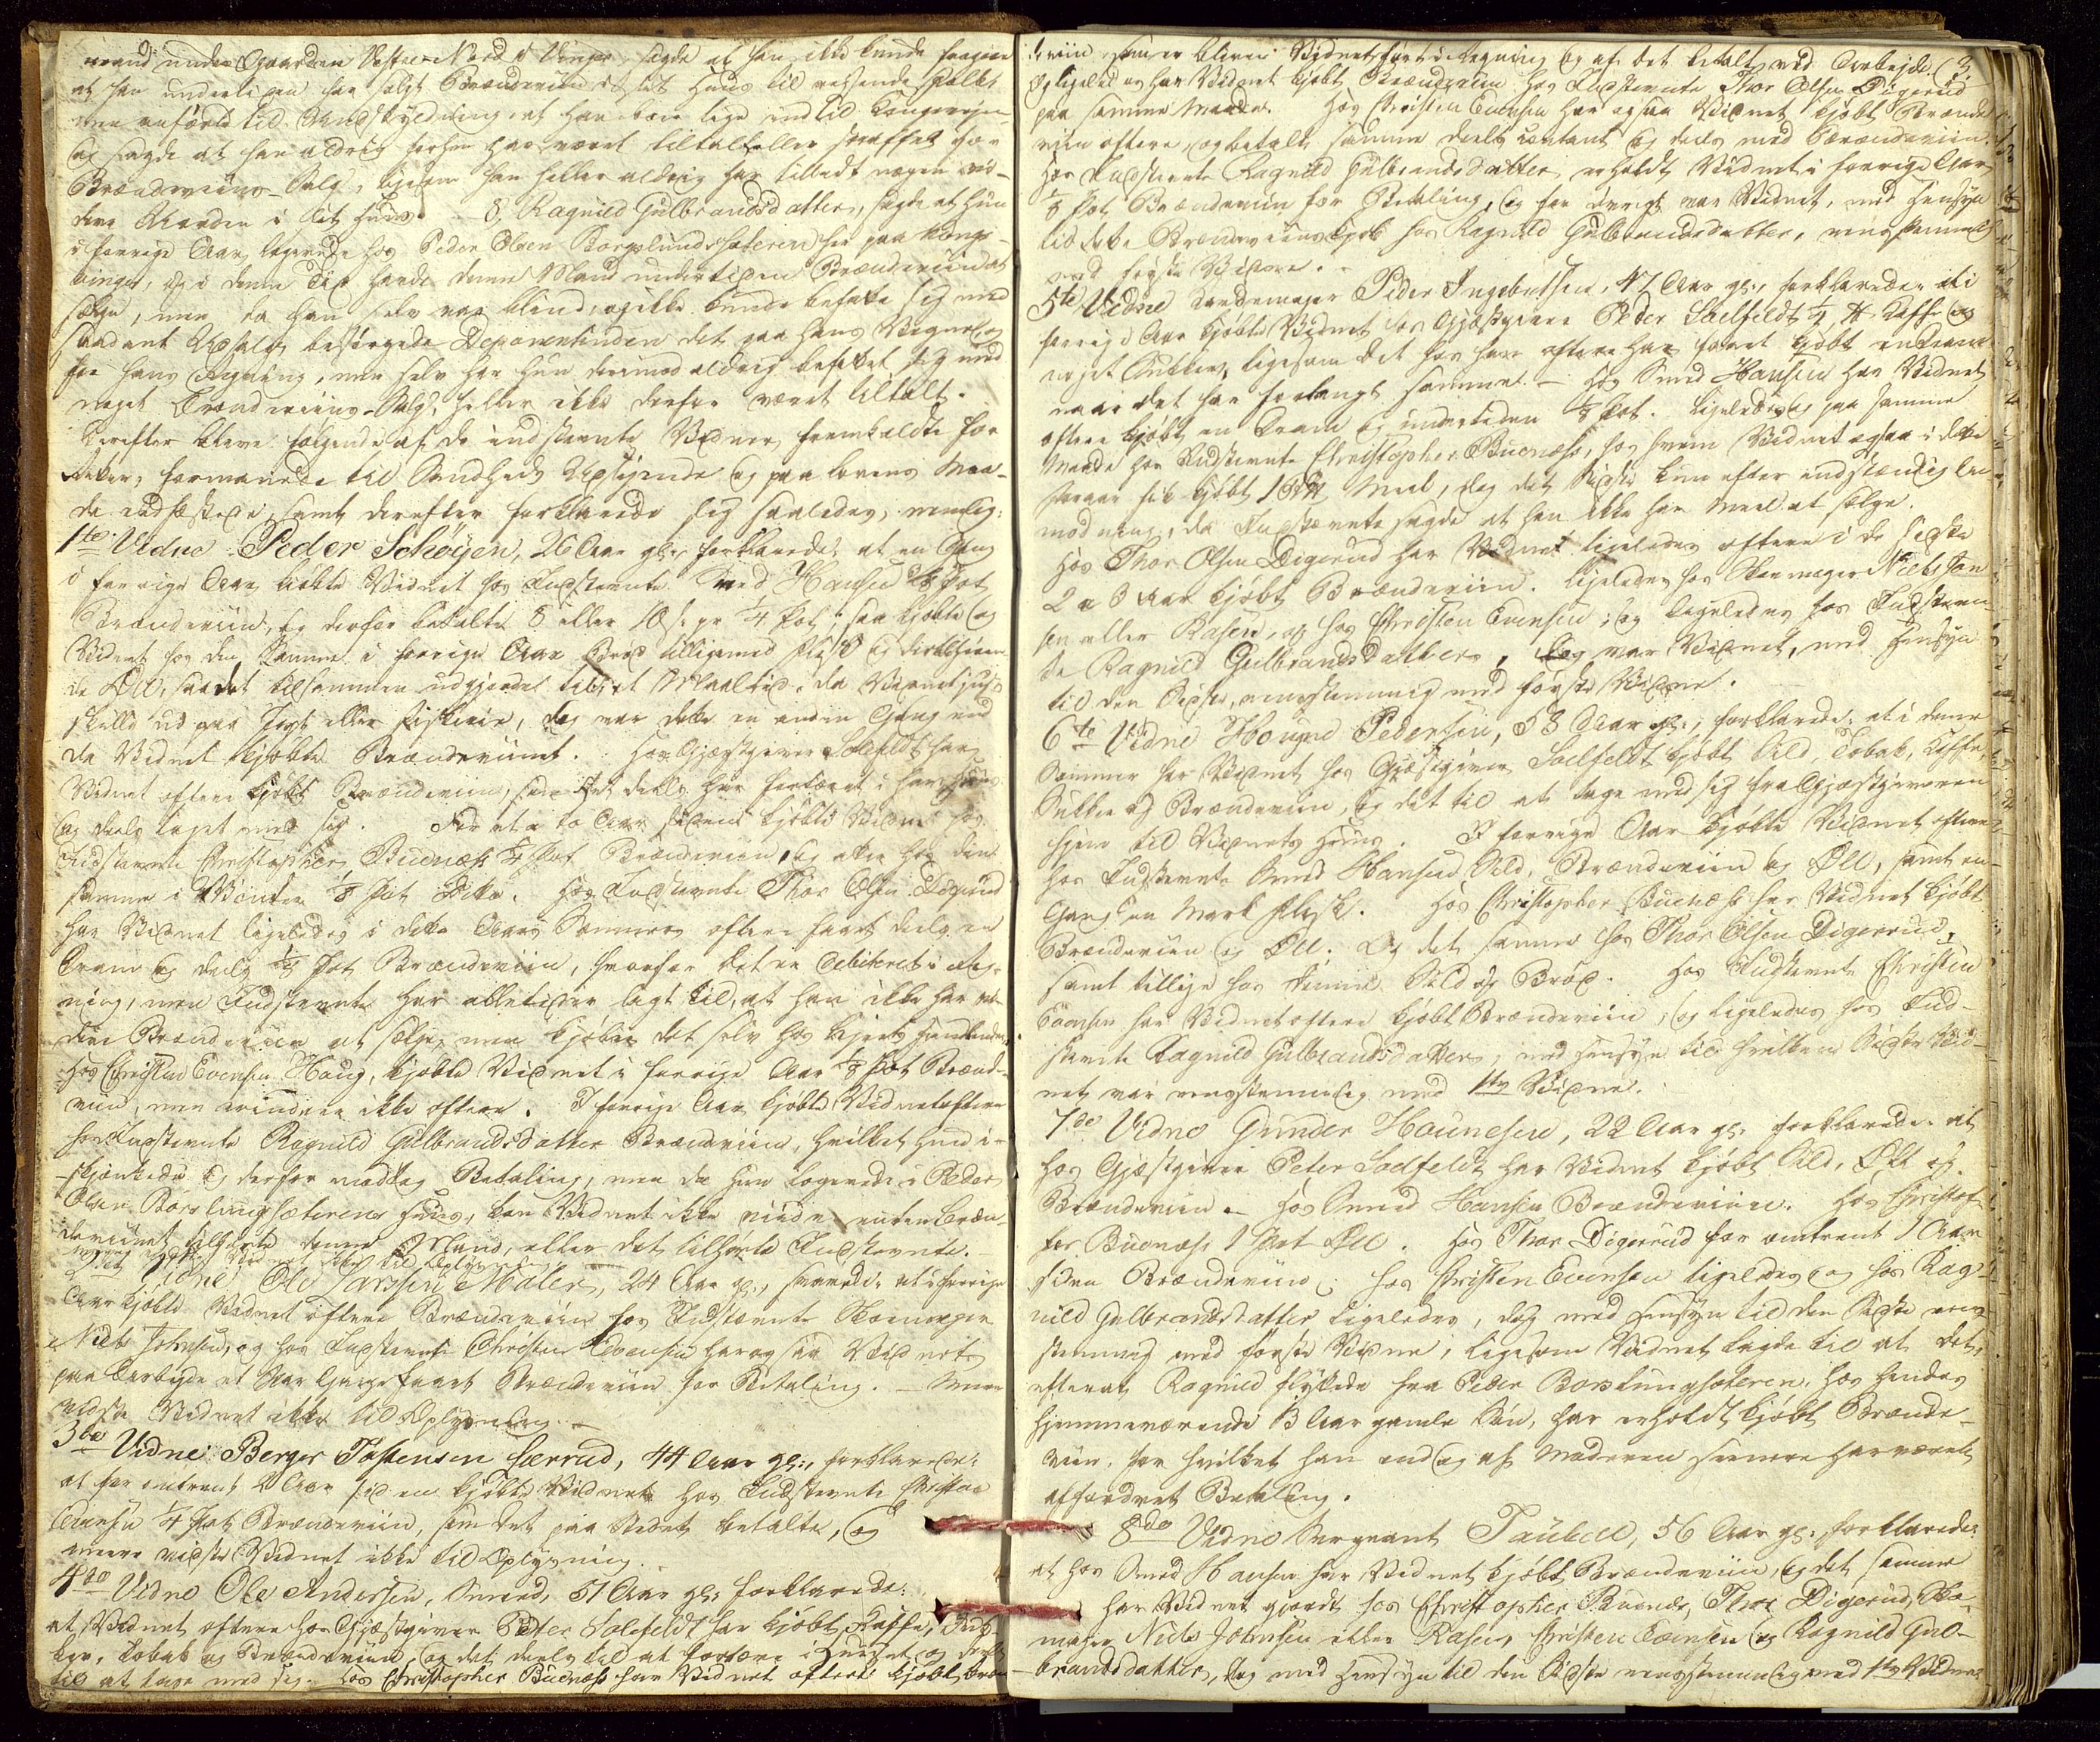 mand under Gaarden Vestre Nord i Vinger, sagde at han ikke kunde fragaae
at han undertiden har solgt Brændeviin i sit Huus til reisende Folk,
men anførte til Undskyldning at han boer lige ved Kongeveien
og sagde at han aldrig forhen har været tiltalt eller straffet for
Brændeviins-Salg, ligesom han heller aldrig har tilladt nogen
i sit Huus. 8, Ragnild Gulbrandsdatter, sagde at hun
i forrige Aar logerede hos Peder Olsen Borgslundsæteren her paa Kongs-
vinger, og i denne Tid havde denne Mand undertiden Brændeviin at
sælge, men da han selv var blind, og ikke kunde befatte sig med
saadant Udsalg, besørgede Deponentinden det paa hans Vegne og
for hans Regning, men selv har hun derimod aldrig befattet sig med
noget Brændeviins-Salg, heller ikke derfor været tiltalt.
Derefter bleve følgende af de indstevnte Vidner fremkaldte for
Retten, formanede til Sandheds Udsigende og paa lovens Maa-
de edfæstede, samt derefter forklarede sig saaledes, nemlig:
1te Vidne Peder Schøyen, 26 Aar gl: forklarede, at en Gang
i forrige Aar kiøbte Vidnet hos Indstevnte Smed Hansen 1/8 Pot
Brændeviin, og derfor betalte 8 eller 10 s: pr 1/4 Pot; saa kjøbte og
Vidnet hos den Samme i forrige Aar Brød tilligemed Flesk og
Øll, saa det tilsammen udgjorde et Maaltid, da Vidnet just
skulde ud paa Jagt eller Fiskerie, dog var dette en anden Gang end
da Vidnet kjøbte Brændeviinet. Hos Gjæstgiver Solefeldt har
Vidnet oftere kjøbt Brændeviin, som det deels har fortæret i hans Huus
og deels taget med sig. For et a to Aar siden kjøbte Vidnet hos
Indstevnte Christopher Buenæs 1/4 Pot Brændeviin, og atter hos den
samme i Vinter 1/8 Pot Ditto. Hos Indstevnte Thor Olsen Digerud
har Vidnet ligeledes i dette Aars Sommer oftere faaet deels en
Dram og deels 1/4 Pot Brændeviin, hvorfor det er debiteret i Reg-
ning, men Indstevnte har alletider lagt til, at han ikke har
Brændeviin at sælge, men kjøber det selv hos
Hos Christen Evensen Haug, kjøbte Vidnet i forrige Aar 1/8 Pot Brænde-
viin, men erindrer ikke oftere. I forrige Aar kjøbte Vidnet oftere
hos Indstevnte Ragnild Gulbrandsdatter Brændeviin, hvilket hun i-
skjenkede og derfor modtog Betaling, men da hun logerede i Peder
Olsen Borslungsæterens Huus, kan Vidnet ikke vide enten Bræn-
deviinet tilhørte denne Mand, eller det tilhørte Indstevnte.
Meere vidste Vidnet ikke til Oplysning.
2det Vidne Ole Larssen Maler, 24 Aar gl:, svarede, at i forrige
Aar kjøbte Vidnet oftere Brændeviin hos Indstevnte Skoemager
Niels Johnsen, og hos Indstevnte Christen Evensen har ogsaa Vidnet
paa et Par Gange faaet Brændeviin for Betaling. — Meere
vidste Vidnet ikke til Oplysning. —
3die Vidne: Berger Tostensen Lærrud, 44 Aar gl:, forklarede:
at for omtrent 2 Aar siden kjøbte Vidnet hos Indstevnte Christen
Evensen 1/4 Pot Brændeviin, som det paa Stedet betalte, og
meere vidste Vidnet ikke til Oplysning.
4de Vidne Ole Andersen, Smed, 51 Aar gl: forklarede:
at Vidnet oftere hos Gjæstgiver Peter Solefeldt har kjøbt Kaffe, Suk-
ker, Tobak og Brændeviin, og det deels til at fortære i Huuset og deels
til at tage med sig. Hos Christopher Buenæs har Vidnet oftere kjøbt Bræn
deviin, som er bleven Vidnet ført i Regning og af det betalt med Arbejde. (3.
Og ligeledes har Vidnet kjøbt Brændeviin hos Indstevnte Thor Olsen Digerud
paa samme Maade. Hos Christen Evensen har ogsaa Vidnet kjøbt Brænde
viin oftere, og betalt samme deels contant og deels med
Hos Indstevnte Ragnild Gulbrandsdatter erholdt Vidnet i forrige Aar
1/8 Pot Brændeviin for Betaling, og for øvrigt var Vidnet, med Hensyn
til dette Brændeviinskjøb hos Ragnild Gulbrandsdatter, eenstemmigt
med første Vidne. —
5te Vidne Peder Ingebretsen, 47 Aar gl:, forklarede: at i
forrige Aar kjøbte Vidnet hos Gjæstgiver Peder Soelfeldt 1/4 ℔ Kaffe og
noget Sukker, ligesom det hos ham oftere har faaet kjøbt en Dram
naar det har forlangt samme. — Hos Smed Hansen har Vidnet
oftere kjøbt en Dram og undertiden 1/8 Pot. Ligeledes og paa samme
Maade hos Indstevnte Christopher Buenæs, hos hvem Vidnet ogsaa i dette
Foraar fik kjøbt 1 Meel, dog det Sidste kun efter indstændig An-
modning, da Indstævnte sagde at han ikke har Meel at sælge.
Hos Thor Olsen Digerud har Vidnet ligeledes oftere i de sidste
2 a 3 Aar kjøbt Brændeviin. Ligeledes hos Skoemager Niels Jon
sen eller Rasen, og hos Christen Evensen; og ligeledes hos Indstevn-
te Ragnild Gulbrandsdatter, dog var Vidnet, med Hensyn
til den Sidste, eenstemmig med første Vidne.
6te Vidne Houge Pedersen, 58 Aar gl:, forklarede: at i denne
Sommer har Vidnet hos Gjæstgiver Soelfeldt kjøbt Sild, Tobak, Kaffe,
Sukker og Brændeviin, og det til at tage med sig fra Gjæstgiveren
hjem til Vidnets Huus. I forrige Aar kjøbte Vidnet oftere
hos Indstevnte Smed Hansen Sild, Brændeviin og Øll, samt en
Gang en Mark Flesk. Hos Christopher Buenæs har Vidnet kjøbt
Brændeviin og Øll. Og det samme hos Thor Olsen Digerud,
samt tillige hos denne Sild og Brød. Hos Indstevnte Christen
Evensen har Vidnet oftere kjøbt Brændeviin, og ligeledes hos Ind-
stevnte Ragnild Gulbrandsdatter, med Hensyn til hvilken Sidste Vid-
net var eenstemmig med 1te Vidne.
7de Vidne Gunder Hounesen, 22 Aar gl: forklarede: at
hos Gjæstgiver Peter Soelfeldt har Vidnet kjøbt Sild, Øll og
Brændeviin. — Hos Smed Hansen Brændeviin. Hos Christof-
fer Buenæs 1 Pot Øll. Hos Thor Digerud for omtrent 1 Aar
siden Brændeviin; hos Christen Evensen ligeledes og hos Rag-
nild Gulbrandsdatter ligeledes, dog med Hensyn til den Sidste een-
stemmig med første Vidne, ligesom Vidnet lagde til at det,
efterat Ragnild flyttede fra Peder Borslungsæteren, hos hendes
hjemmeværende 13 Aar gamle Søn, har erholdt kjøbt Brænde-
viin, for hvilket han endog af Moderen senere har været
affordret Betaling.
8de Vidne Sergeant Taubell, 56 Aar gl: forklarede:
at hos Smed Hansen har Vidnet kjøbt Brændeviin, og det samme
har Vidnet gjordt hos Christopher Buenæs, Thor Digerud, Skoe
mager Niels Johnsen eller Rasen, Christen Evensen og Ragnild Gul-
brandsdatter, dog med Hensyn til den Sidste eenstemmig med 1te Vidne